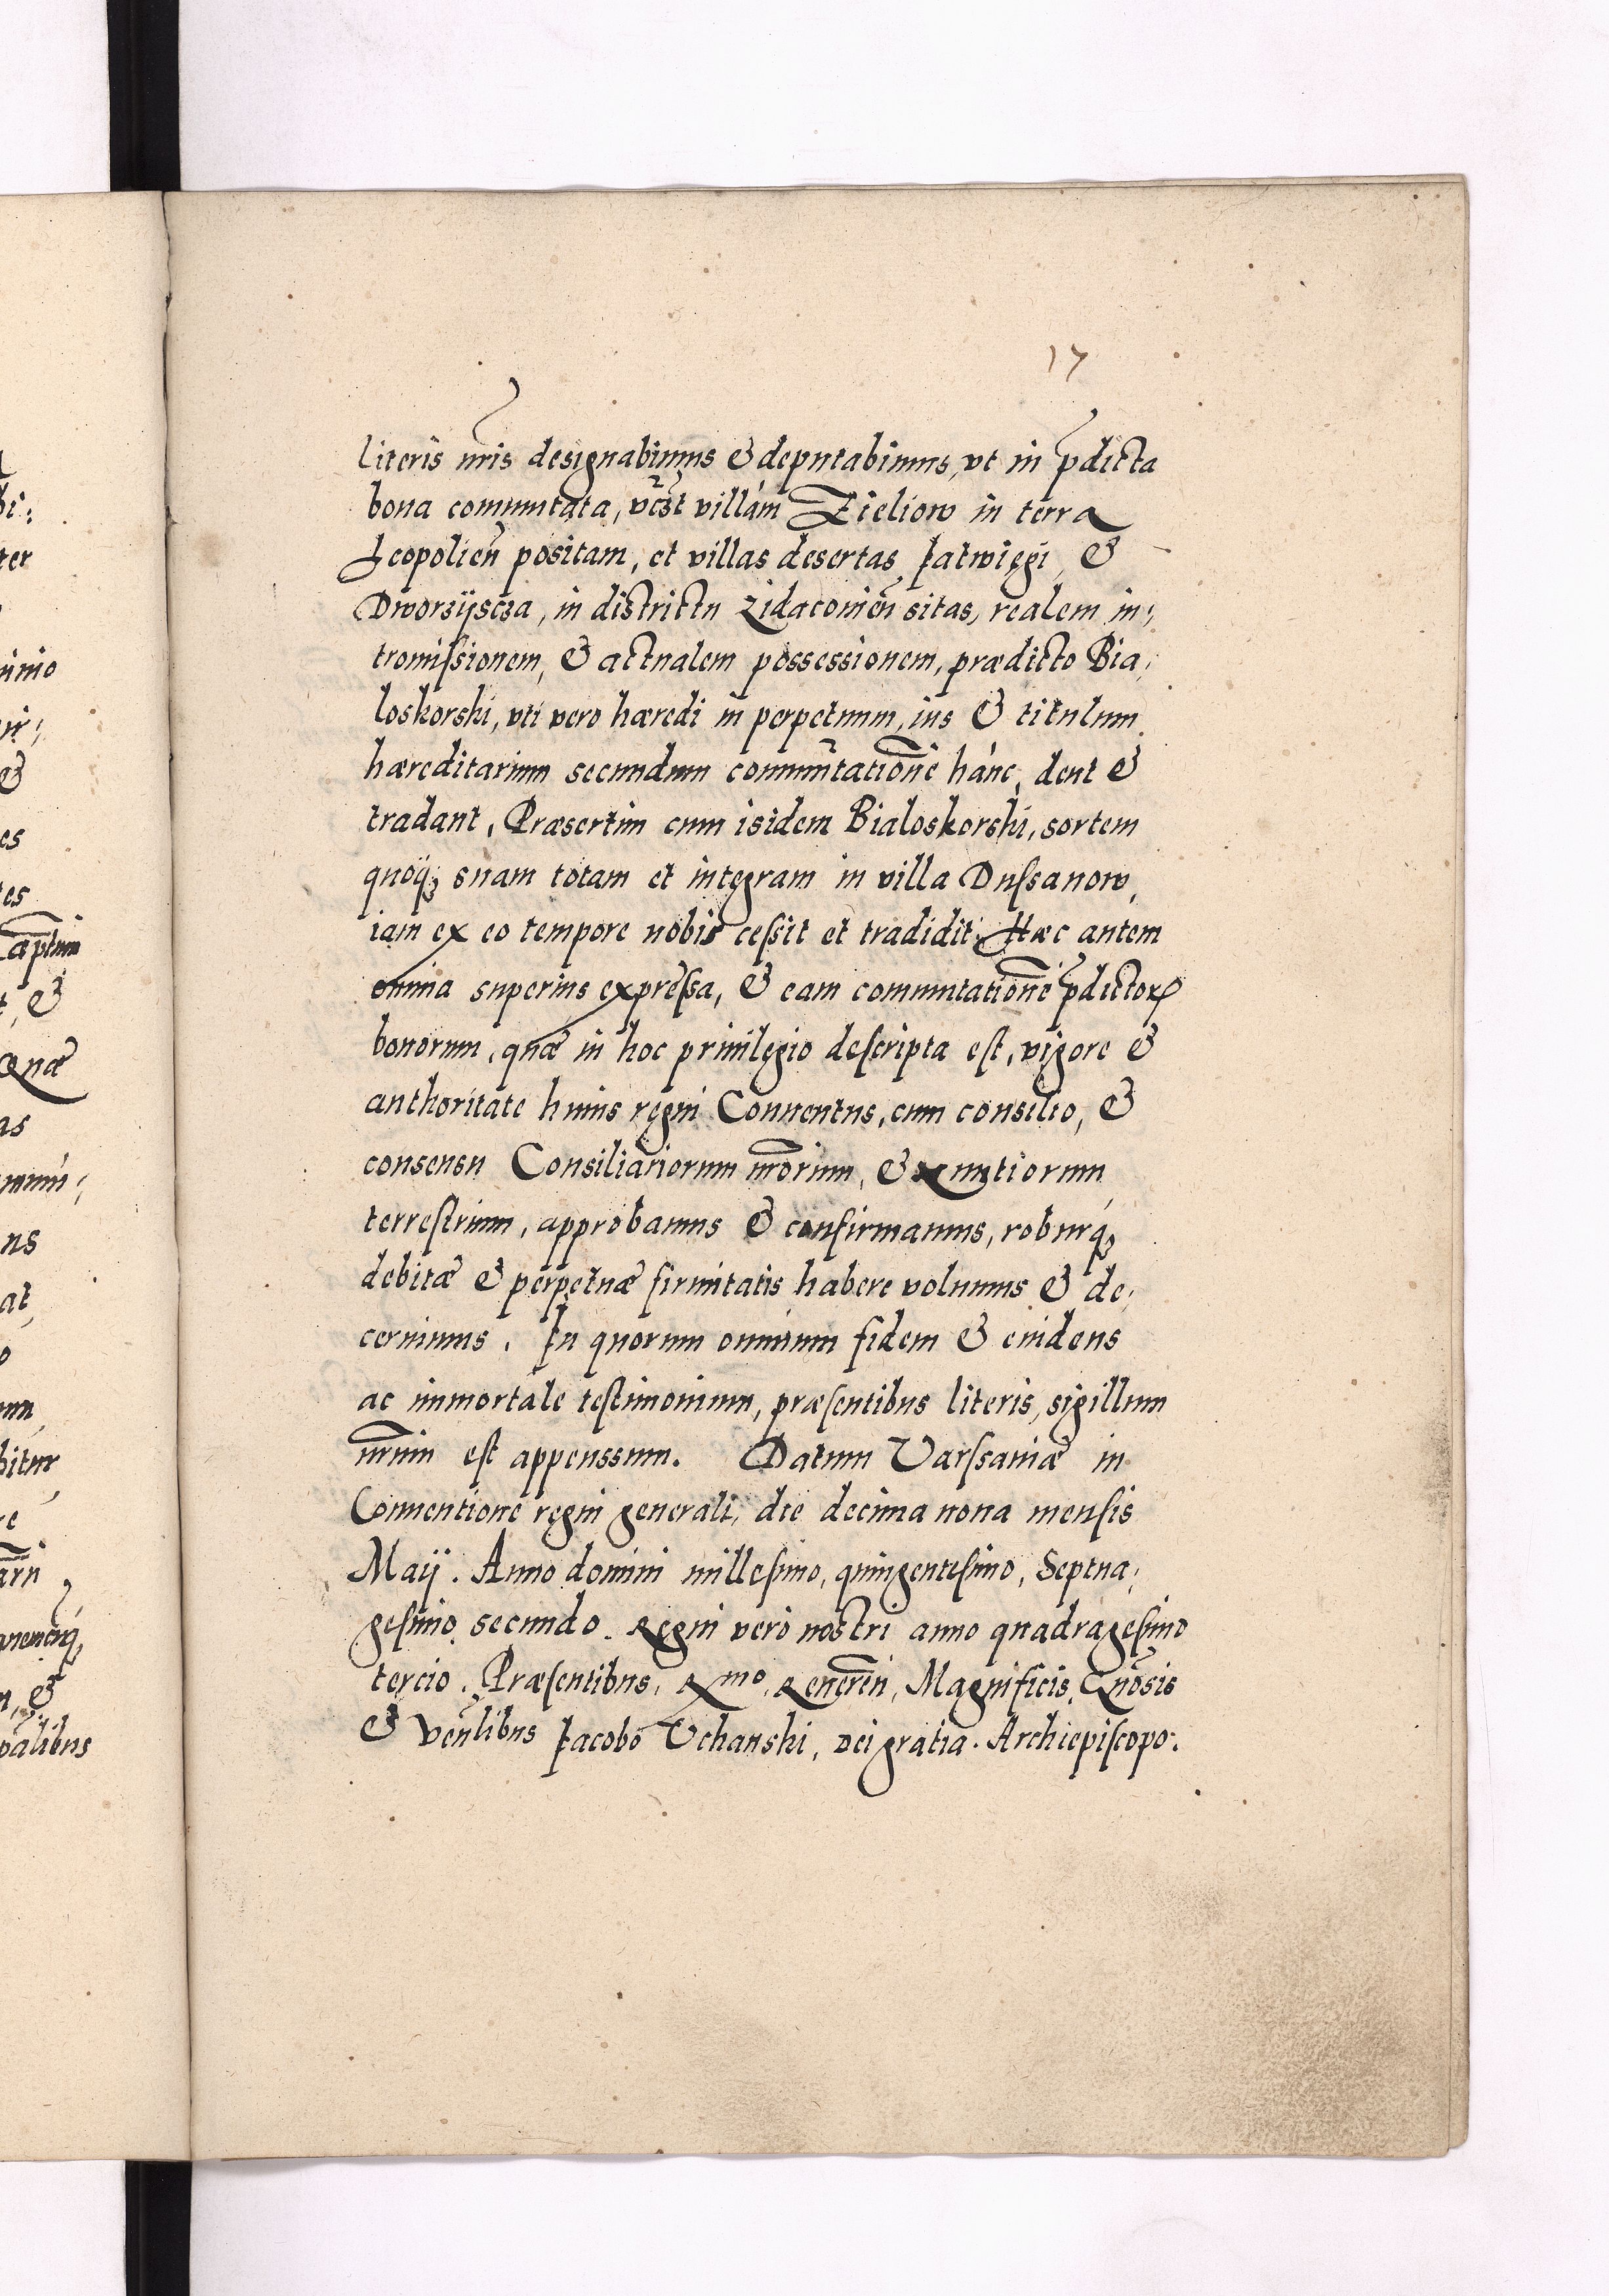 17
literis nris designabimus & deputabimus, vt in pdicta
bona comutata, vcst villam Zieliow in terra
Leopolien positam, et villas desertas Jatwięgi, &
Dworzijscza, in districtu Zidaconien sitas, realem in,
tromissionem, & actualem possessionem, prædicto Bia,
loskorski, vti vero hæredi in perpetuum, ius & titulum
hæreditarium secundum commutatione hanc, dent &
tradant, Præsertim cum isidem Bialoskorski, sortem
quoq; suam totam et integram in villa Dussanow,
iam ex eo tempore nobis cessit et tradidit. Hæc autem
omnia superius expressa, & eam commutatione pdictor
bonorum, quæ in hoc priuilegio descripta est, vigore &
authoritate huius regni Conuentus, cum consilio, &
consensu Consiliariorum nrorum, & nuntiorum
terrestrium, approbamus & confirmamus, roburq;
debitæ & perpetuæ firmitatis habere volumus & de,
cernimus. In quorum omnium fidem & euidens
ac immortale testimonium, præsentibus literis, sigillum
nrum est appenssum. Datum Varssauiæ in
Conuentione regni generali, die decima nona mensis
Maij. Anno domini millesimo, quingentesimo, Septua,
gesimo secundo. Regni vero nostri anno quadragesimo
tercio. Præsentibus, Rmo, Reueren, Magnificis, Gnosis
& Venlibus Jacobo Vchanski, Dei gratia. Archiepiscopo.